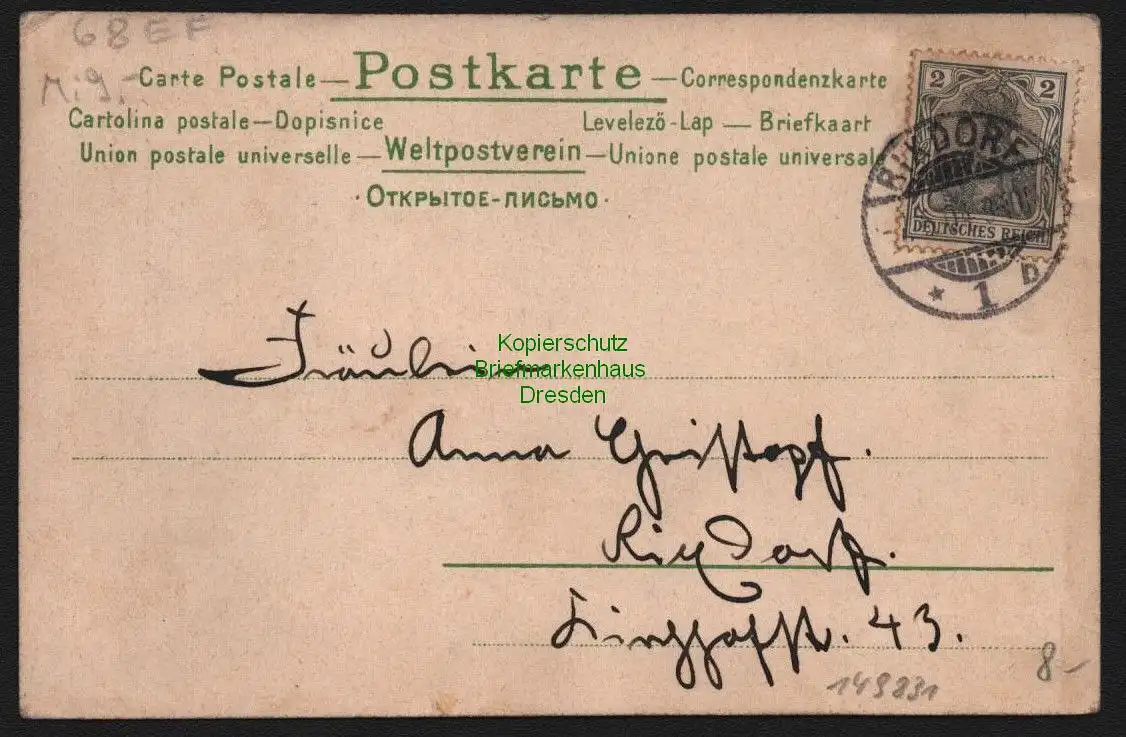 68 EF
M. 9.-
Carte Postale — Postkarte — Correspondenzkarte
Cartolina postale — Dopisnice Levelező-Lap — Briefkaart
Union postale universelle — Weltpostverein — Unione postale universale
· Открытое-письмо ·
2 2
DEUTSCHES REICH
RIXDORF
* 1 b
Kopierschutz
Briefmarkenhaus
Dresden
Fräulein
Anna
Rixdorf.
43.
149831
8-